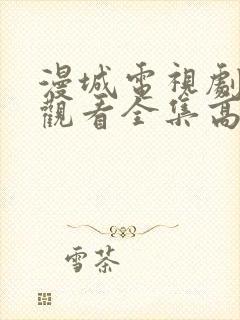 漫城電視劇
觀看全集高
雪茶